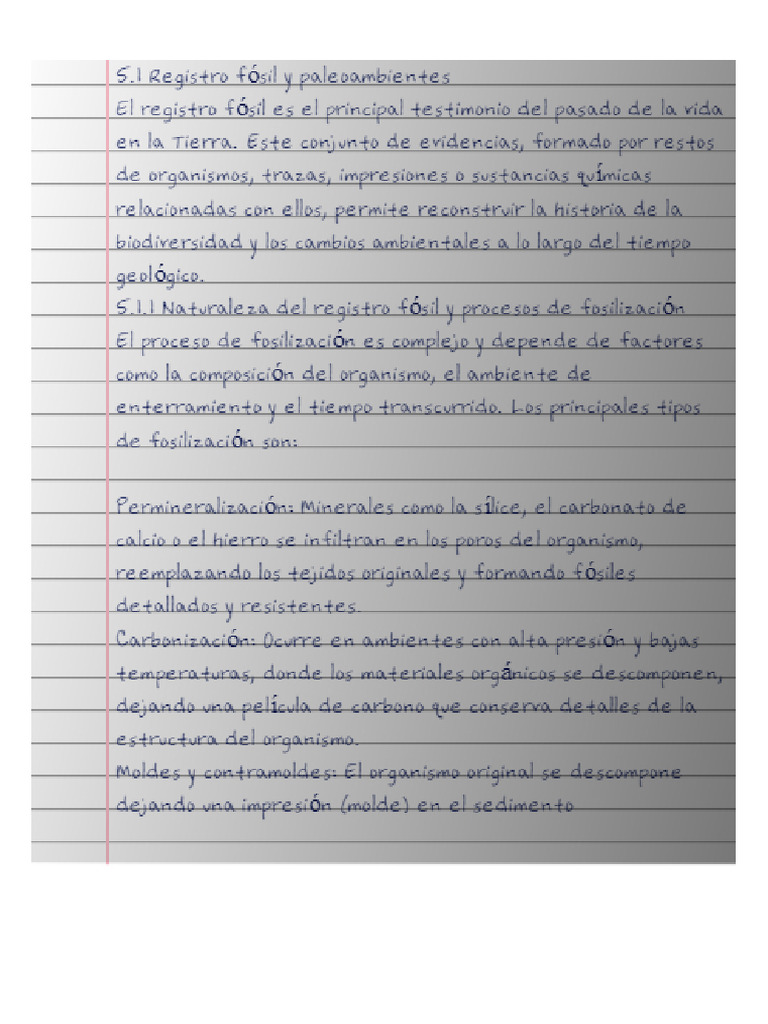 5.1 Registro fósil y paleoambientes
El registro fósil es el principal testimonio del pasado de la vida
en la Tierra. Este conjunto de evidencias, formado por restos
de organismos, trazas, impresiones o sustancias químicas
relacionadas con ellos, permite reconstruir la historia de la
biodiversidad y los cambios ambientales a lo largo del tiempo
geológico.
5.1.1 Naturaleza del registro fósil y procesos de fosilización
El proceso de fosilización es complejo y depende de factores
como la composición del organismo, el ambiente de
enterramiento y el tiempo transcurrido. Los principales tipos
de fosilización son:
Permineralización: Minerales como la sílice, el carbonato de
calcio o el hierro se infiltran en los poros del organismo,
reemplazando los tejidos originales y formando fósiles
detallados y resistentes.
Carbonización: Ocurre en ambientes con alta presión y bajas
temperaturas, donde los materiales orgánicos se descomponen,
dejando una película de carbono que conserva detalles de la
estructura del organismo.
Moldes y contramoldes: El organismo original se descompone
dejando una impresión (molde) en el sedimento